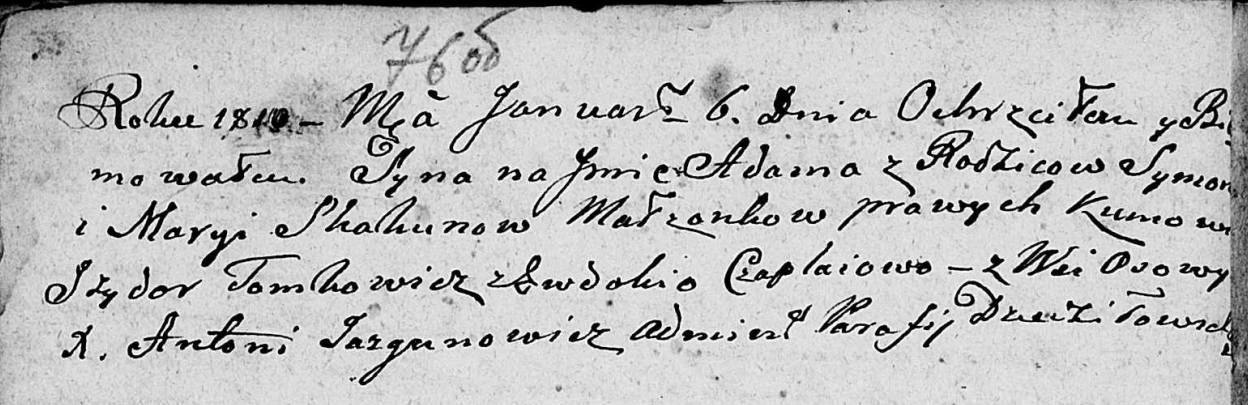 76об
Roku 1810 – Mca Januarÿ 6. Dnia Ochrzciłem y Bi
mowałem. Syna na Jmie Adama z Rodzicow Symon
i Maryi Skakunow Małżonkow prawych Kumowi
Jzydor Tomkowicz z Ewdokio Czaplaiowo – z Wsi Osowy
X. Antoni Jazgunowicz Admin Parafij Dziedziłowick